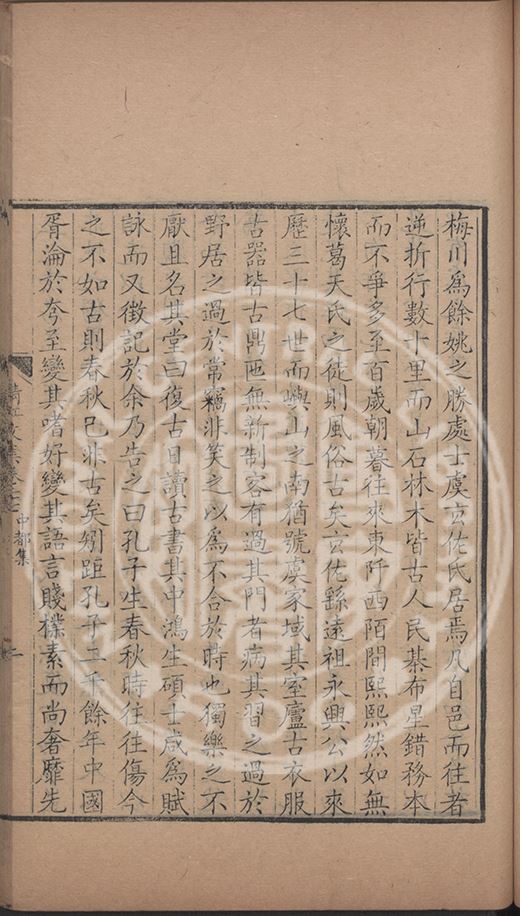 梅川爲餘姚之勝處士虞玄佐氏居焉凡自邑而往者
逆折行數十里而山石林木皆古人民棊布星錯務本
而不爭多至百歲朝暮往來東阡西陌間熙熙然如無
懷葛天氏之徒則風俗古矣玄佐繇遠祖永興公以來
歷三十七世而嶼山之南猶號虞家域其室廬古衣服
古器皆古鼎匜無新制客有過其門者病其習之過於
野居之過於常竊非笑之以爲不合於時也獨樂之不
厭且名其堂曰復古日讀古書其中鴻生碩士咸爲賦
詠而又徵記於余乃告之曰孔子生春秋時往往傷今
之不如古則春秋已非古矣矧距孔子二千餘年中國
胥淪於夸至變其嗜好變其語言賤樸素而尚奢靡先
清江文集卷十七 中都集
二